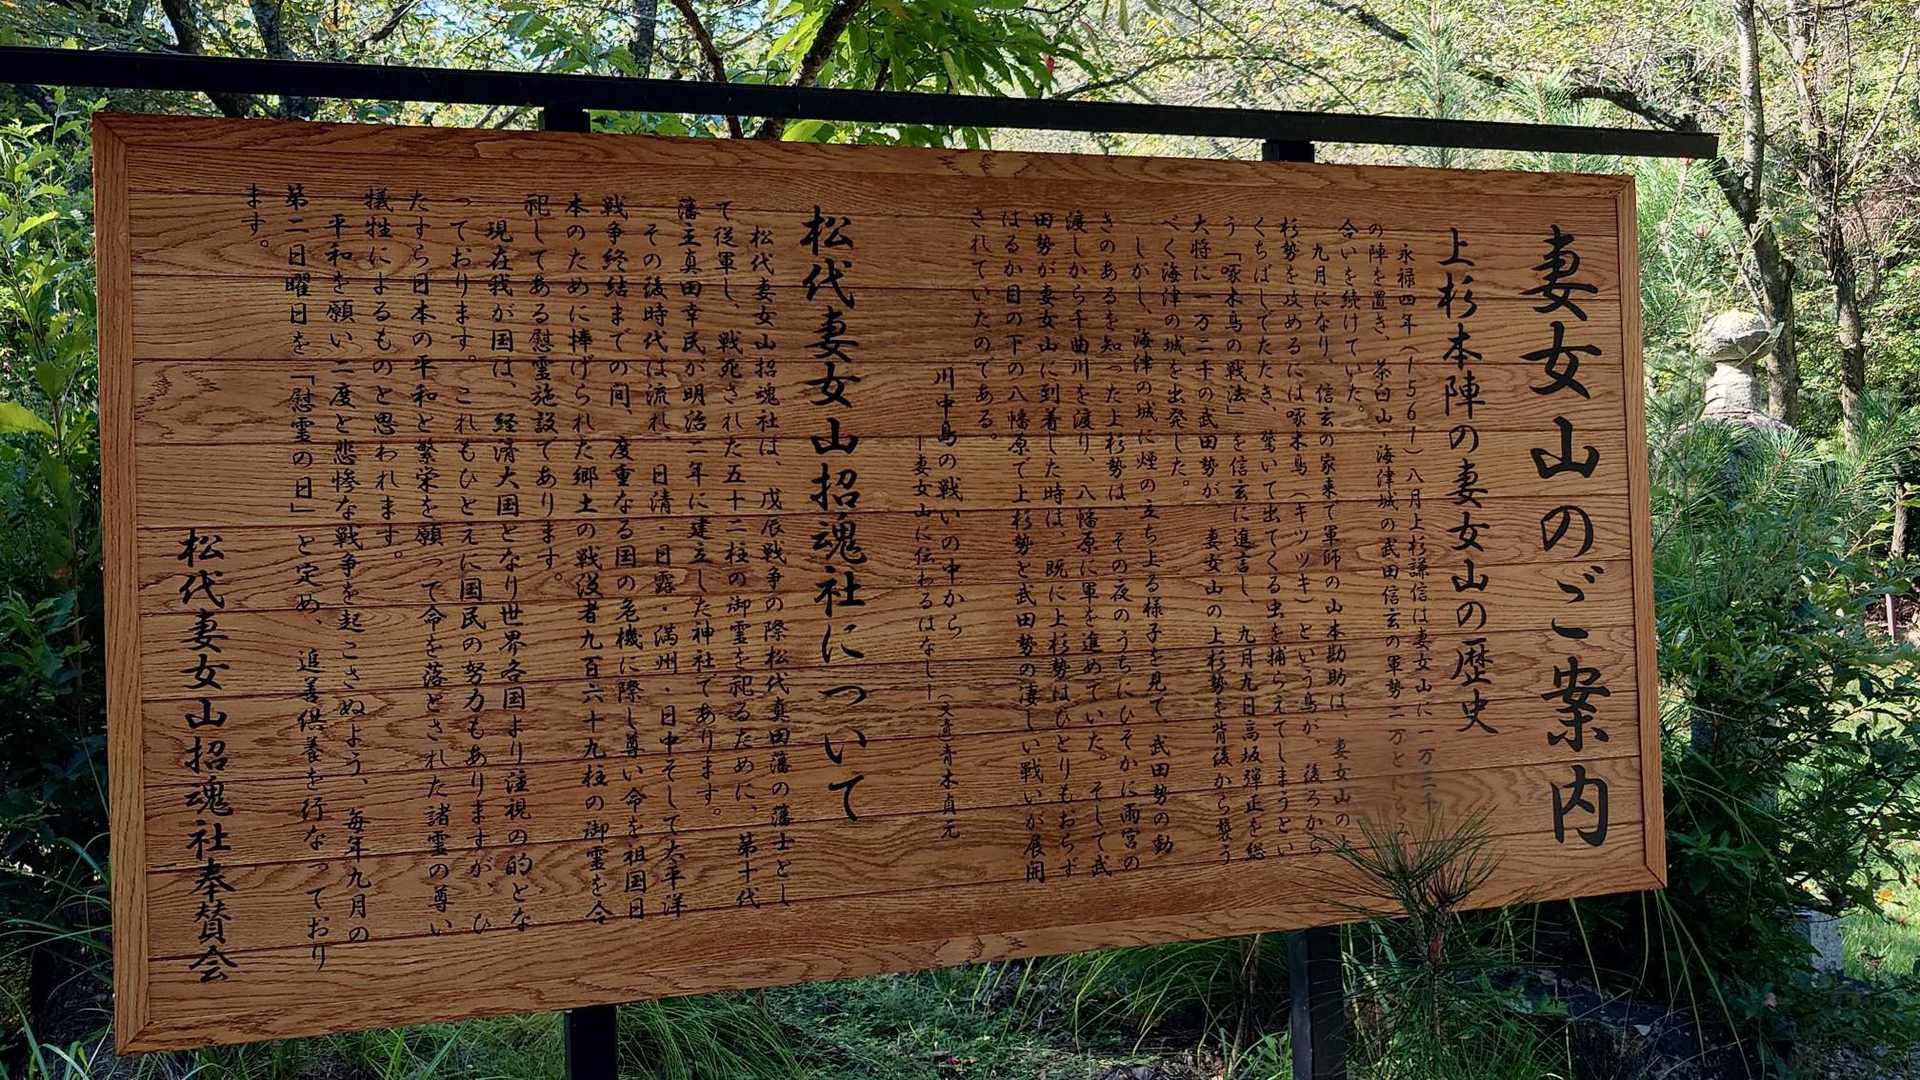 妻女山のご案内
上杉本陣の妻女山の歴史
永禄四年（1561）八月上杉謙信は妻女山に一万三千
の陣を置き、茶臼山・海津城の武田信玄の軍勢二万と
合いを続けていた。
九月になり、信玄の家来で軍師の山本勘助は、妻女山の
杉勢を攻めるには啄木鳥（キツツキ）という鳥が、後ろから
くちばしでたたき、驚いて出てくる虫を捕らえてしまうとい
う「啄木鳥の戦法」を信玄に進言し、九月九日高坂弾正を総
大将に一万二千の武田勢が　妻女山の上杉勢を背後から襲う
べく海津の城を出発した。
しかし、海津の城に煙の立ち上る様子を見て、武田勢の動
きのあるを知った上杉勢は、その夜のうちにひそかに雨宮の
渡しから千曲川を渡り、八幡原に軍を進めていた。そして武
田勢が妻女山に到着した時は、既に上杉勢はひとりもおらず
はるか目の下の八幡原で上杉勢と武田勢の凄しい戦いが展開
されていたのである。
川中島の戦いの中から
ー妻女山に伝わるはなしー（文責青木貞元
松代妻女山招魂社について
松代妻女山招魂社は、戊辰戦争の際松代真田藩の藩士とし
て従軍し、戦死された五十二柱の御霊を祀るために、第十代
藩主真田幸民が明治二年に建立した神社であります。
その後時代は流れ、日清・日露・満州・日中そして太平洋
戦争終結までの間、度重なる国の危機に際し尊い命を祖国日
本のために捧げられた郷土の戦没者九百六十九柱の御霊を合
祀してある慰霊施設であります。
現在我が国は、経済大国となり世界各国より注視の的とな
っております。これもひとえに国民の努力もありますが、ひ
たすら日本の平和と繁栄を願って命を落とされた諸霊の尊い
犠牲によるものと思われます。
平和を願い二度と悲惨な戦争を起こさぬよう、毎年九月の
第二日曜日を「慰霊の日」と定め、追善供養を行なっており
ます。
松代妻女山招魂社奉賛会